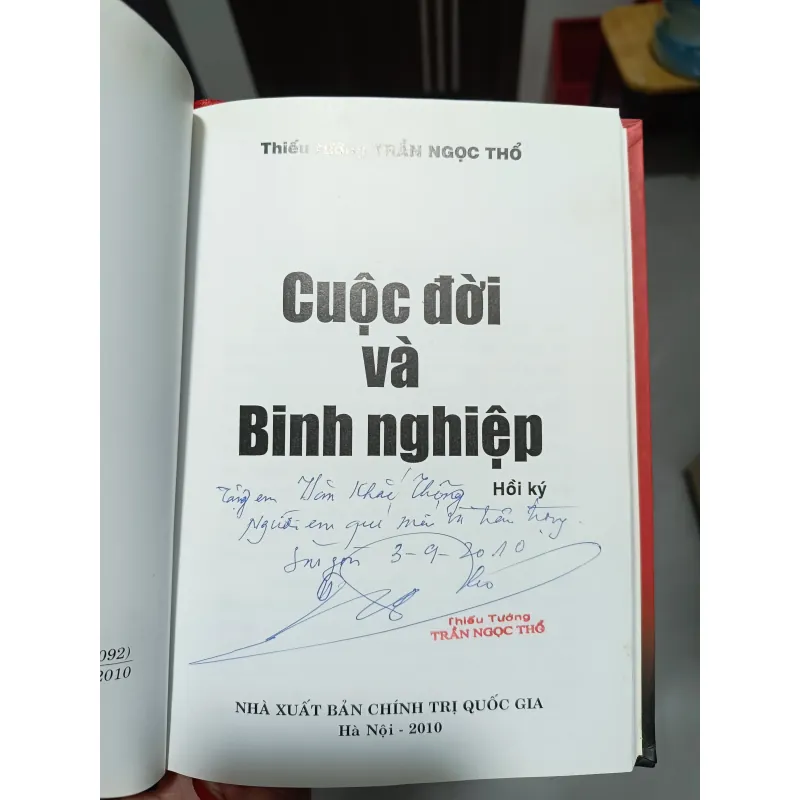 Thiếu tướng TRẦN NGỌC THỔ
Cuộc đời
và
Binh nghiệp
Hồi ký
Tặng em Khắc
Người em quí mến và trân trọng.
Sài gòn 3-9-2010
Thiếu Tướng
TRẦN NGỌC THỔ
NHÀ XUẤT BẢN CHÍNH TRỊ QUỐC GIA
Hà Nội - 2010
092)
2010